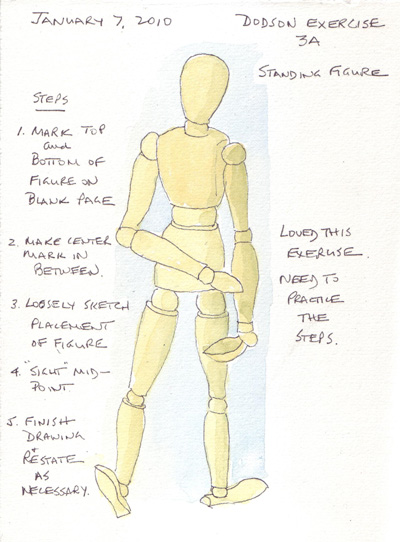 JANUARY 7, 2010
DODSON EXERCISE
3A
STANDING FIGURE
STEPS
1. MARK TOP
and
BOTTOM OF
FIGURE ON
BLANK PAGE
2. MAKE CENTER
MARK IN
BETWEEN.
3. LOOSELY SKETCH
PLACEMENT
OF FIGURE
4. "SIGHT" MID-
POINT
5. FINISH
DRAWING
+
RESTATE
AS
NECESSARY.
LOVED THIS
EXERCISE.
NEED TO
PRACTICE
THE
STEPS.